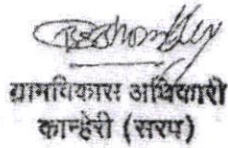 ग्रामविकास अधिकारी
कान्हेरी (सरप)